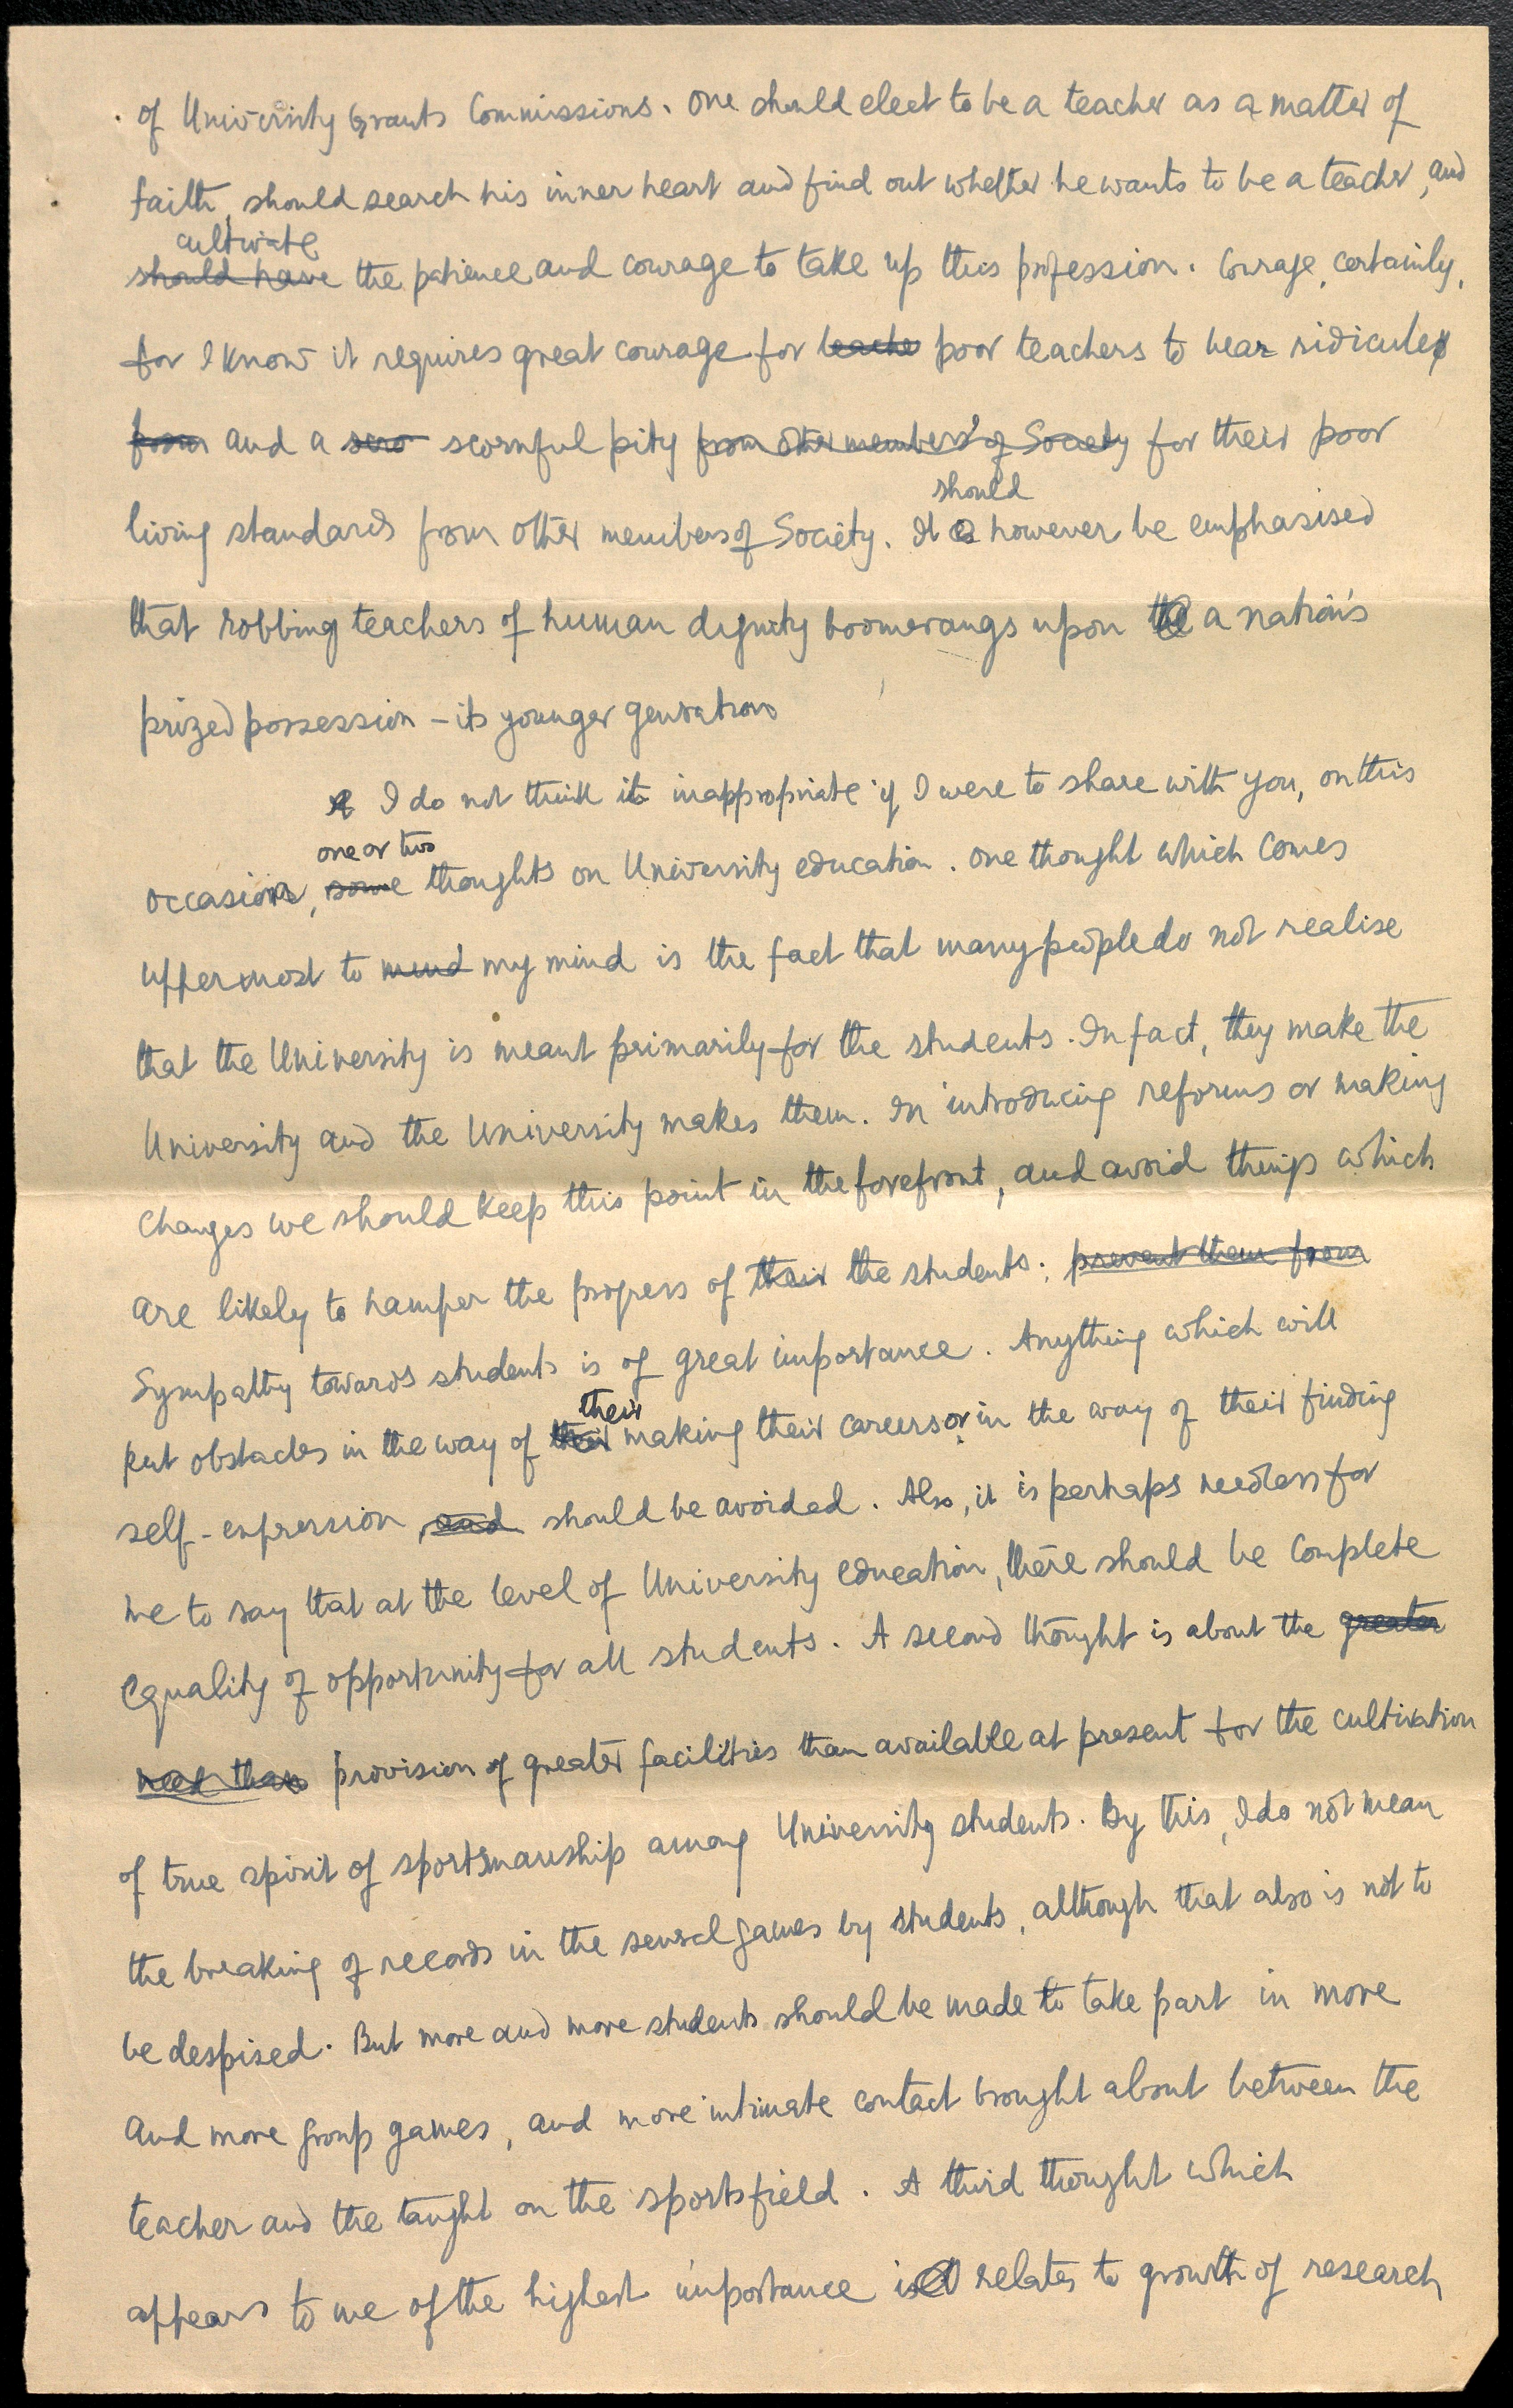 of University Grants Commissions. One should elect to be a teacher as a matter of
faith, should search his inner heart and find out whether he wants to be a teacher, and
cultivate
should have the patience and courage to take up this profession. Courage, certainly,
for I know it requires great courage for teache poor teachers to bear ridicule
from and a scro scornful pity from other members of Society for their poor
should
living standards from other members of Society. It is however be emphasised
that robbing teachers of human dignity boomerangs upon the a nation's
prized possession – its younger generations
A I do not think its inappropriate if I were to share with you, on this
one or two
occasion, some thoughts on University education. One thought which comes
uppermost to mind my mind is the fact that many people do not realise
that the University is meant primarily for the students. In fact, they make the
University and the University makes them. In introducing reforms or making
changes we should keep this point in the forefront, and avoid things which
are likely to hamper the progress of their the students; prevent them from
Sympathy towards students is of great importance. Anything which will
their
put obstacles in the way of their making their careers or in the way of their finding
self-expression, and should be avoided. Also, it is perhaps needless for
me to say that at the level of University education, there should be complete
equality of opportunity for all students. A second thought is about the greater
need than provision of greater facilities than available at present for the cultivation
of true spirit of sportsmanship among University students. By this, I do not mean
the breaking of records in the several games by students, although that also is not to
be despised. But more and more students should be made to take part in more
and more group games, and more intimate contact brought about between the
teacher and the taught on the sportsfield. A third thought which
appears to me of the highest importance is relates to growth of research